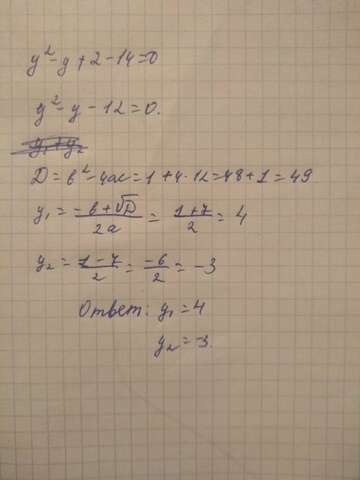 y²-y+2-14=0
y²-y-12=0.
y₁+y₂
D=b²-4ac=1+4·12=48+1=49
y₁=(-b+√D)/2a=(1+7)/2=4
y₂=(1-7)/2=-6/2=-3
Ответ: y₁=4
y₂=-3.